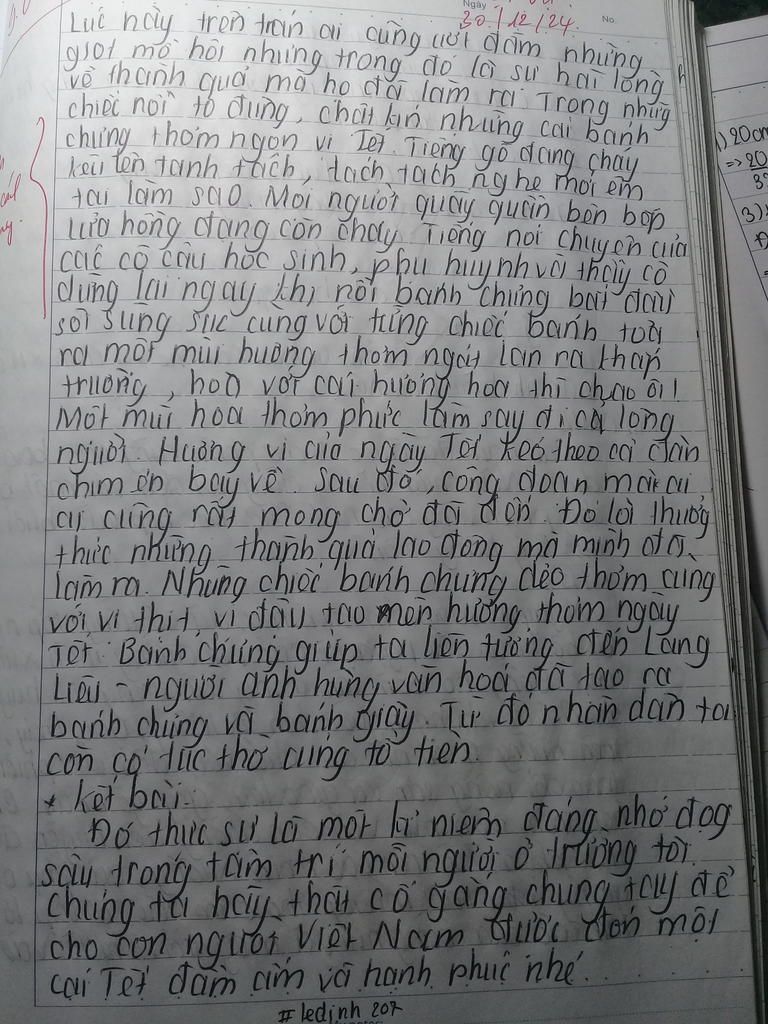 Ngày
No.
30/12/24
Lúc này trên trán ai cũng ướt đẫm những
giọt mồ hôi nhưng trong đó là sự hài lòng
về thành quả mà họ đã làm ra. Trong những
chiếc nồi to đùng, chật kín những cái bánh
chưng thơm ngon vị Tết. Tiếng gỗ đang cháy
kêu lên tanh tách, tách tách nghe mới êm
tai làm sao. Mọi người quây quần bên bếp
lửa hồng đang còn cháy. Tiếng nói chuyện của
các cô cậu học sinh, phụ huynh và thầy cô
dừng lại ngay thì nồi bánh chưng bắt đầu
sôi sùng sục cùng với từng chiếc bánh toả
ra một mùi hương thơm ngát lan ra khắp
trường, hoà với cái hương hoa thì chao ôi!
Một mùi hoa thơm phức làm say đi cả lòng
người. Hương vị của ngày Tết kéo theo cả đàn
chim én bay về. Sau đó, công đoạn mà ai
ai cũng rất mong chờ đã đến. Đó là thưởng
thức những thành quả lao động mà mình đã
làm ra. Những chiếc bánh chưng dẻo thơm cùng
với vị thịt, vị đậu tạo nên hương thơm ngày
Tết. Bánh chưng giúp ta liên tưởng đến Lang
Liêu - người anh hùng văn hoá đã tạo ra
bánh chưng và bánh giầy. Từ đó nhân dân ta
còn có tục thờ cúng tổ tiên.
* Kết bài:
Đó thực sự là một kỉ niệm đáng nhớ đọg
sâu trong tâm trí mỗi người ở trường tôi.
Chúng ta hãy thật cố gắng chung tay để
cho con người Việt Nam được đón một
cái Tết đầm ấm và hạnh phúc nhé.
#ledinh207
1) 20cm
=> 20
3)